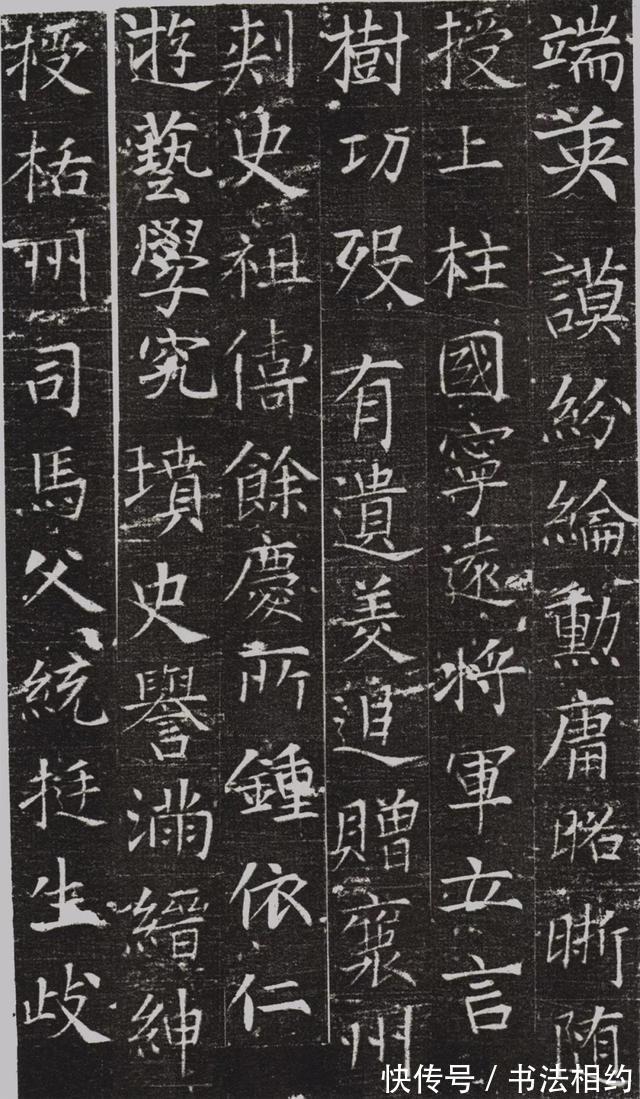 端英謨紛綸勳庸昭晣隋
授上柱國寧遠將軍立言
樹功歿有遺美追贈襄州
刾史祖儔餘慶所鍾依仁
遊藝學究墳史譽滿縉紳
授栝州司馬父統挺生歧
快传号 / 书法相约